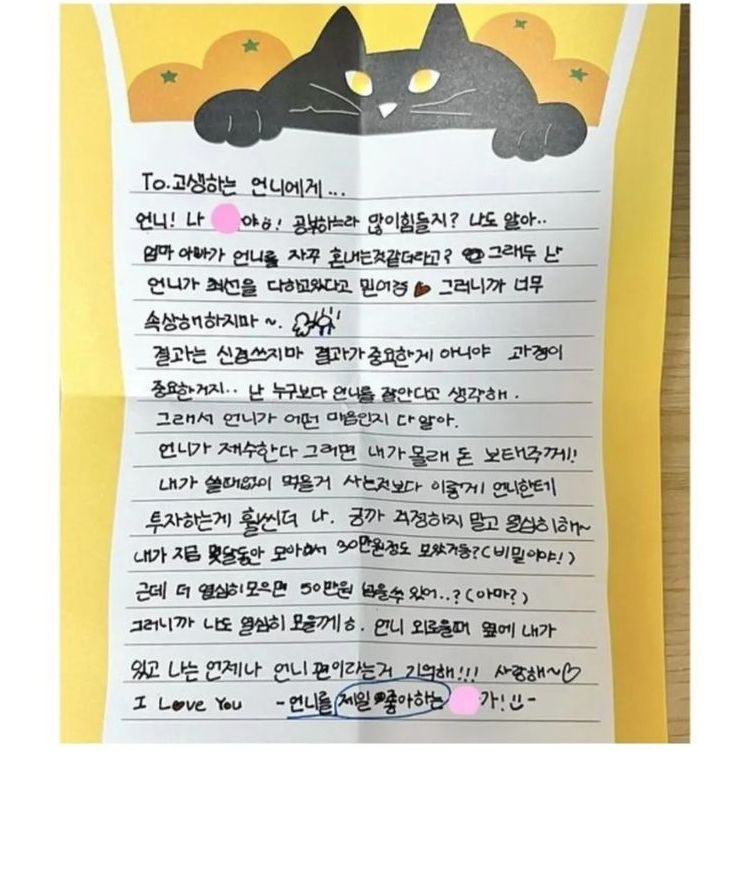 To.고생하는 언니에게...
언니! 나 야ㅎ! 공부하느라 많이힘들지? 나도 알아..
엄마 아빠가 언니를 자꾸 혼내는것같더라고? 그래두 난
언니가 최선을 다하고있다고 믿어 그러니까 너무
속상해하지마~.
결과는 신경쓰지마 결과가중요한게 아니야 과정이
중요한거지.. 난 누구보다 언니를 잘안다고 생각해.
그래서 언니가 어떤 마음인지 다알아.
언니가 재수한다 그러면 내가몰래 돈 보태주께!!
내가 쓸때없이 먹을거 사는것보다 이렇게 언니한테
투자하는게 훨씬더 나. 긍까 걱정하지 말고 열심히해~
내가 지금 몇달동안 모아서 30만원정도 모았거등?(비밀이야!)
근데 더 열심히모으면 50만원 넘을수 있어..?(아마?)
그러니까 나도 열심히 모을께ㅎ. 언니 외로울때 옆에 내가
있고 나는 언제나 언니 편이라는거 기억해!!! 사랑해~♡
I Love You -언니를 제일 좋아하는 가!-